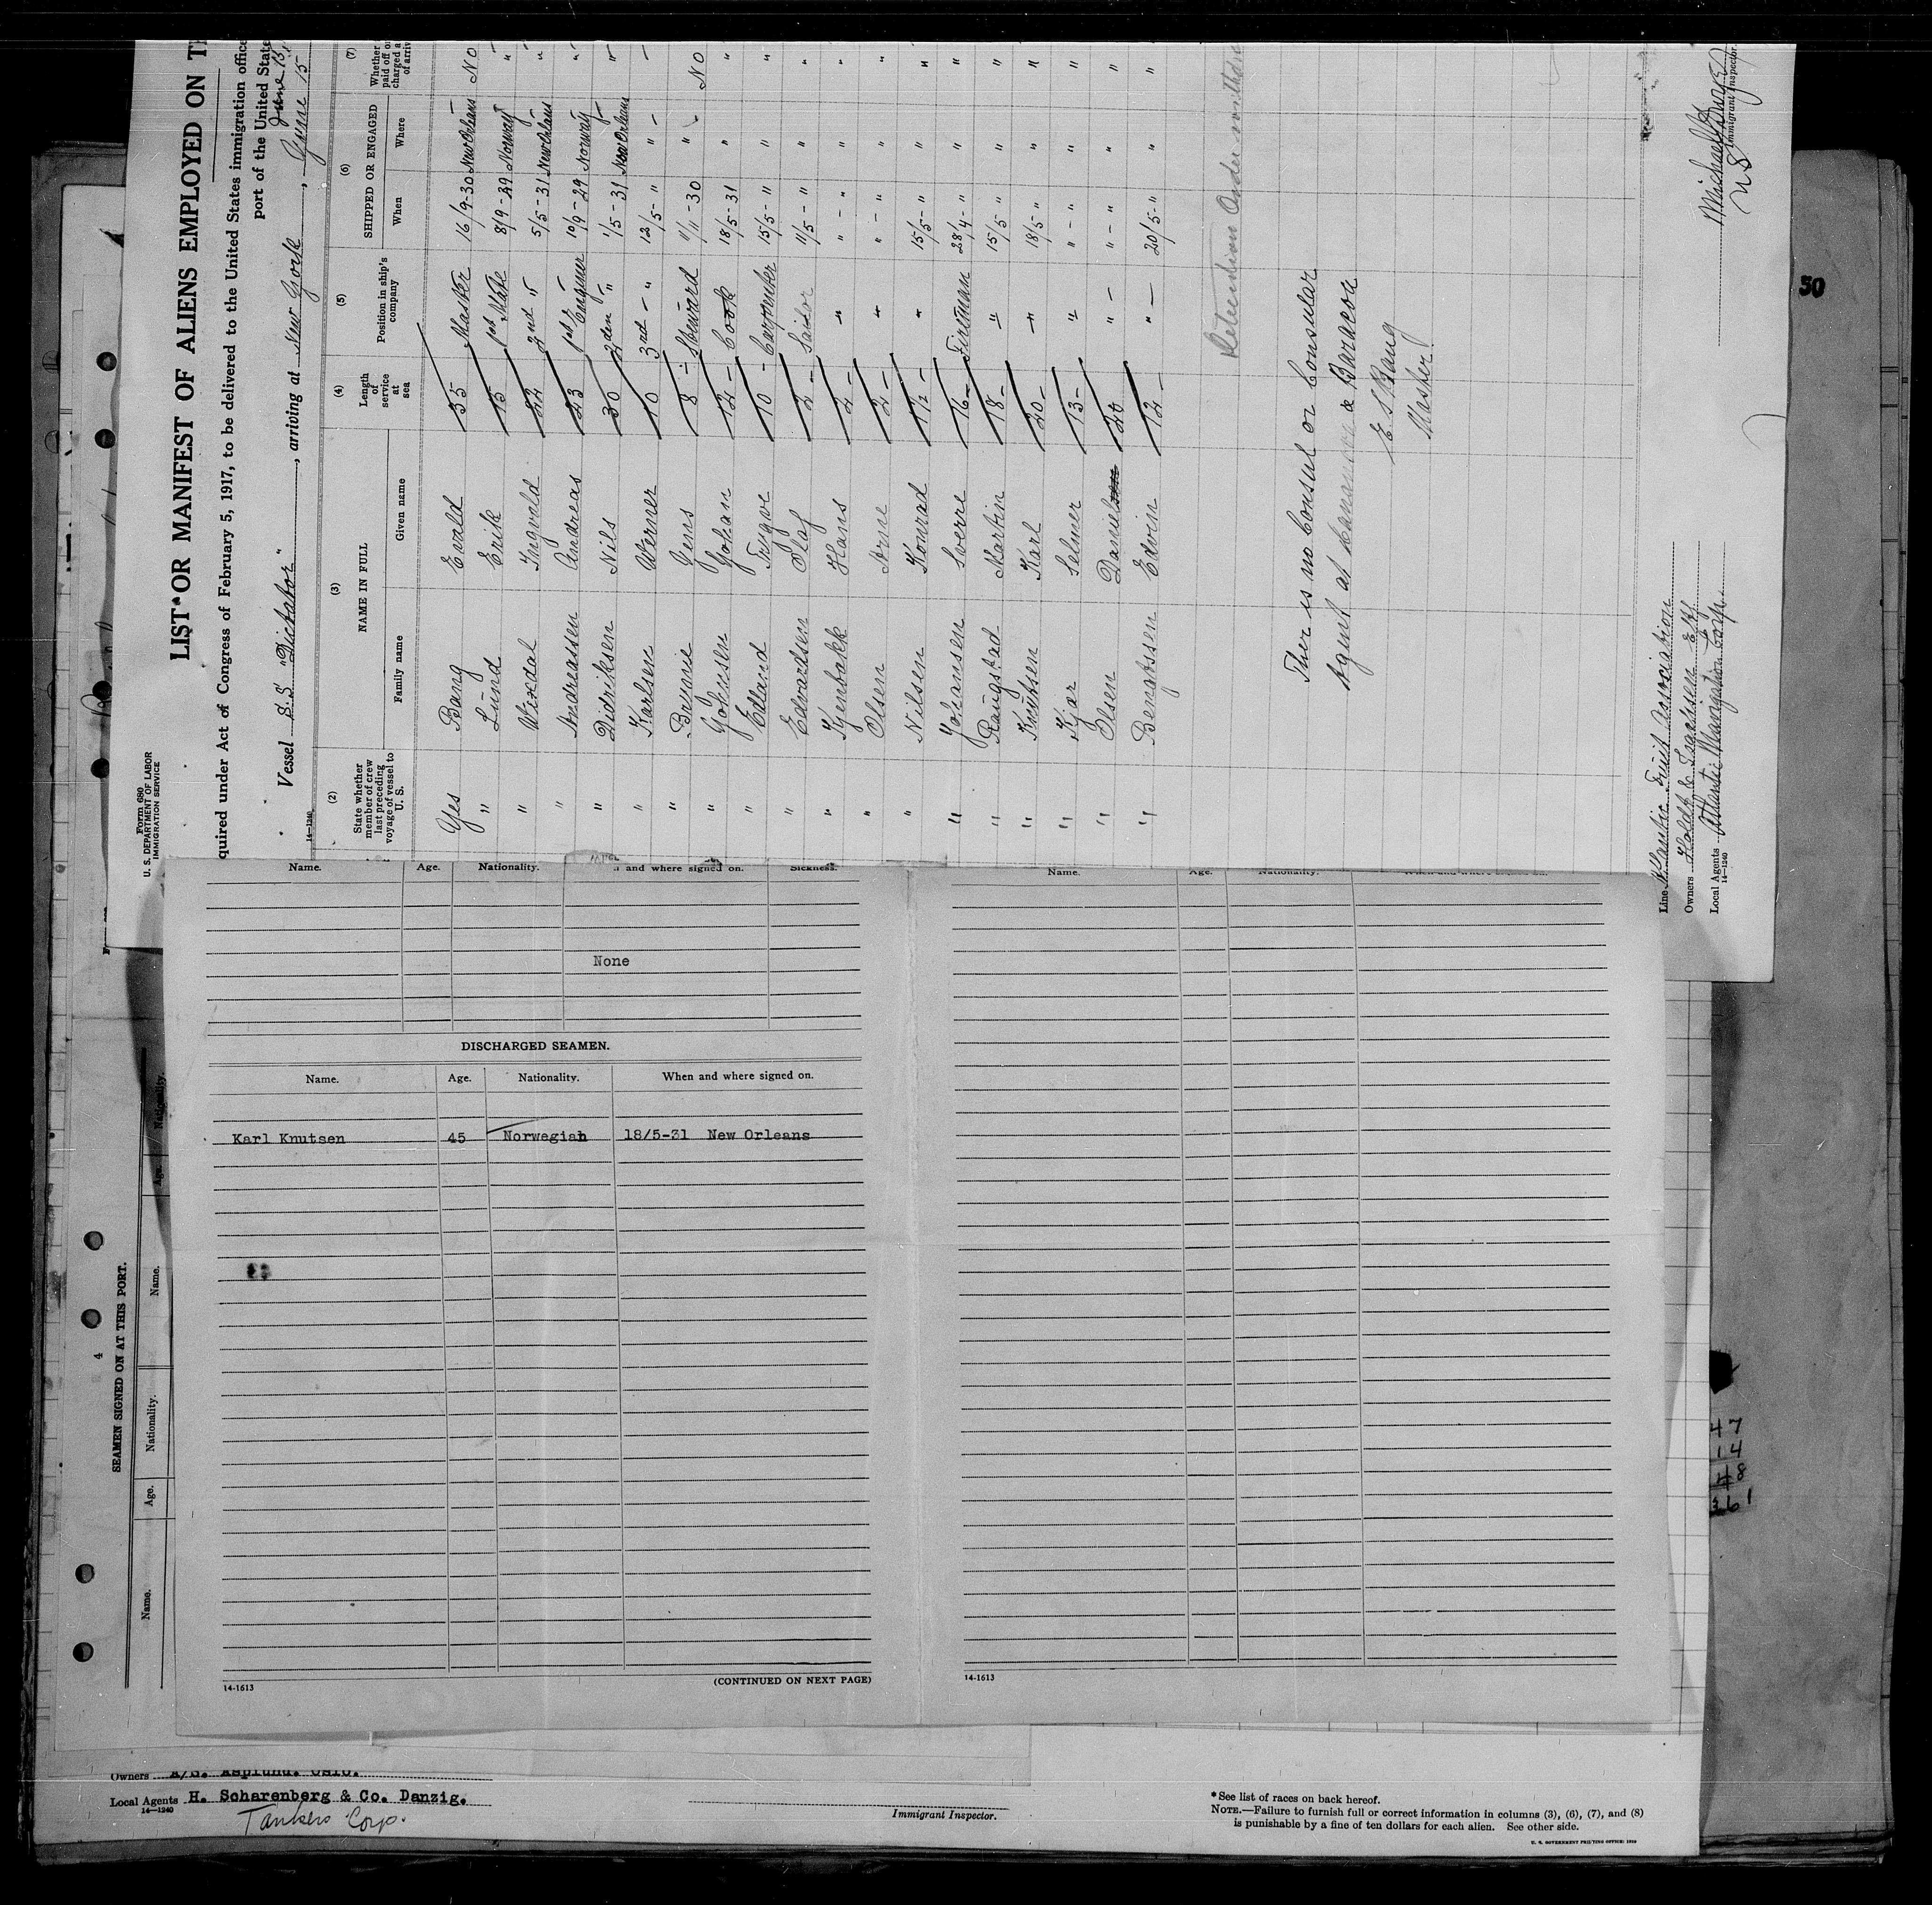 Form 680
U. S. DEPARTMENT OF LABOR
IMMIGRATION SERVICE
LIST OR MANIFEST OF ALIENS EMPLOYED ON TH
quired under Act of Congress of February 5, 1917, to be delivered to the United States immigration office
port of the United State
Vessel S.S "Dictator", arriving at New York, June 15
14—1240
(2) (3) (4) (5) (6) (7)
State whether member of crew last preceding voyage of vessel to U. S.
NAME IN FULL
Family name Given name
Length of service at sea
Position in ship's company
SHIPPED OR ENGAGED
When Where
Yes Bang Evald 35 Master 16/9-30 New Orleans No
" Lund Erik 15 1st Mate 8/9-29 Norway "
" Wixdal Ingvald 22 2nd " 5/5-31 New Orleans "
" Andreassen Andreas 23 1st Engineer 10/9-29 Norway "
" Didriksen Nils 30 2den " 1/5-31 New Orleans "
" Karlsen Werner 10 3rd - " 12/5-" " -
" Brunvie Jens 8 Steward 11/11-30 " No
" Johnsen Johan 12 Cook 18/5-31 " "
" Edland Trygve 10 Carpenter 15/5-" " "
" Edvardsen Olaf 2 Sailor 11/5-" " "
" Kyenbakk Hans 2 " " - " " "
" Olsen Arne 2 " " - " " "
" Nilsen Konrad 1½ " 15/5-" " "
" Johansen Sverre 16 Fireman 28/4-" " "
" Raugstad Martin 18 " 15/5 " " "
" Knutsen Karl 20 " 18/5 " " "
" Kjar Selmer 13 " " - " " "
" Olsen Daniel 20 " " - " " "
" Bengtssen Edvin 12 " 20/5-" " "
Detention Order withdrawn
Ther is no Consul or Consular
Agent at Tanamon & Baracoa
E S Bang
Master.
Line Atlantic Fruit Association
Owners Holdt & Isachsen
Local Agents Atlantic Navigation Corp.
14—1240
Immigrant Inspector.
50
Name. Age. Nationality. and where signed on. Sickness.
None
DISCHARGED SEAMEN.
Name. Age. Nationality. When and where signed on.
Karl Knutsen 45 Norwegian 18/5-31 New Orleans
14-1613
(CONTINUED ON NEXT PAGE)
Name. Age. Nationality. When and where signed on.
14-1613
4
SEAMEN SIGNED ON AT THIS PORT.
Name. Age. Nationality. Name. Age. Nationality.
47
14
48
361
Owners A/S. Asplund. Oslo.
Local Agents H. Scharenberg & Co. Danzig.
14—1240
Tankers Corp.
Immigrant Inspector.
* See list of races on back hereof.
NOTE.—Failure to furnish full or correct information in columns (3), (6), (7), and (8)
is punishable by a fine of ten dollars for each alien. See other side.
U. S. GOVERNMENT PRINTING OFFICE: 1929